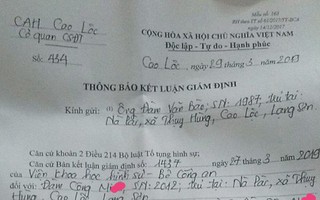 Mẫu số: 183
CAH Cao Lộc
CỘNG HÒA XÃ HỘI CHỦ NGHĨA VIỆT NAM
Cơ quan CSĐT
Độc lập - Tự do - Hạnh phúc
Số: 434
Cao Lộc, ngày 29 tháng 3 năm 2019
THÔNG BÁO KẾT LUẬN GIÁM ĐỊNH
Kính gửi: Ông Đàm Văn Bảo; SN: 1987; trú tại:
Nà Pài, xã Thụy Hùng, Cao Lộc, Lạng Sơn
Căn cứ khoản 2 Điều 214 Bộ luật Tố tụng hình sự;
Căn cứ Bản kết luận giám định số: 1437 ngày 27 tháng 3 năm 2019
của Viện khoa học hình sự - Bộ Công an
đối với: Đàm Công SN: 2012; trú tại: Nà Pài, xã Thụy
Hùng, Cao Lộc, Lạng Sơn